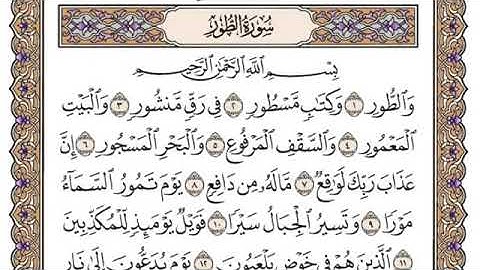 سُورَةُ الطُّورِ
بِسْمِ اللَّهِ الرَّحْمَٰنِ الرَّحِيمِ
وَالطُّورِ ١ وَكِتَابٍ مَّسْطُورٍ ٢ فِي رَقٍّ مَّنشُورٍ ٣ وَالْبَيْتِ
الْمَعْمُورِ ٤ وَالسَّقْفِ الْمَرْفُوعِ ٥ وَالْبَحْرِ الْمَسْجُورِ ٦ إِنَّ
عَذَابَ رَبِّكَ لَوَاقِعٌ ٧ مَّا لَهُ مِن دَافِعٍ ٨ يَوْمَ تَمُورُ السَّمَاءُ
مَوْرًا ٩ وَتَسِيرُ الْجِبَالُ سَيْرًا ١٠ فَوَيْلٌ يَوْمَئِذٍ لِّلْمُكَذِّبِينَ
١١ الَّذِينَ هُمْ فِي خَوْضٍ يَلْعَبُونَ ١٢ يَوْمَ يُدَعُّونَ إِلَىٰ نَارِ